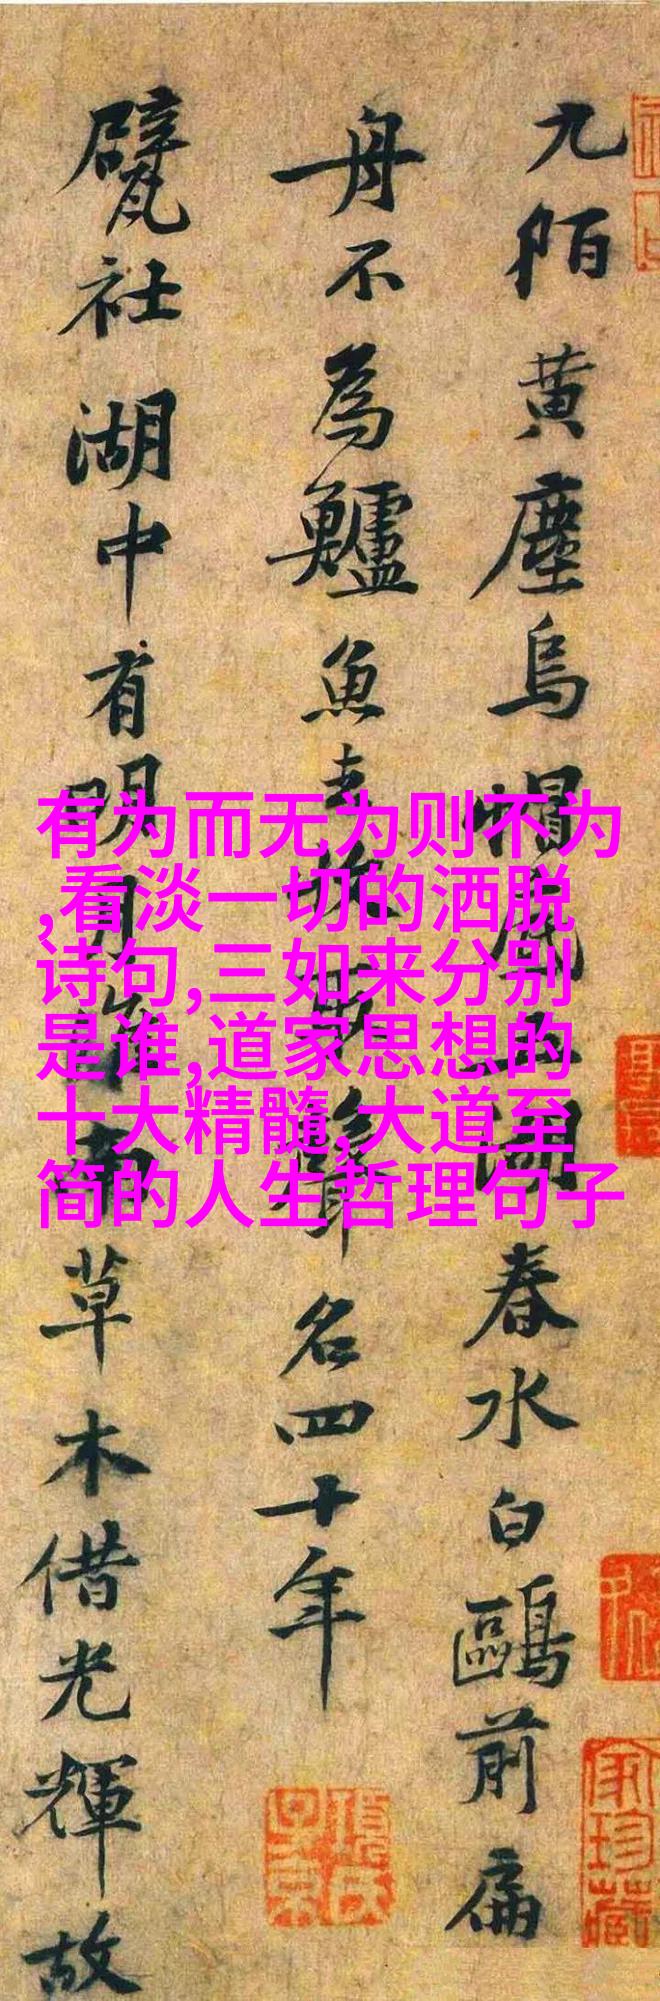 九陌黄塵烏帽春水白鷗前扁
舟不為鱸魚去聲名四十年
甓社湖中有明月淮南草木借光輝故
項氏子京
家珍藏
有为而无为则不为
,看淡一切的洒脱
诗句,三如来分别
是谁,道家思想的
十大精髓,大道至
简的人生哲理句子